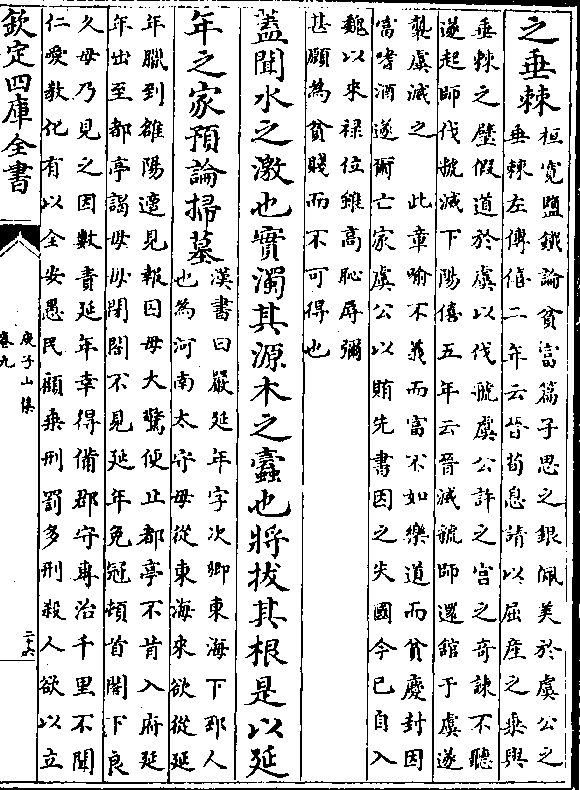 之垂棘桓寛鹽鐵論貧富篇子思之銀佩美於虞公之
垂棘左傳僖二年云晉荀息請以屈產之乘與
垂棘之璧假道於虞以伐虢虞公許之宮之奇諫不聽
遂起師伐虢滅下陽僖五年云晉滅虢師還館于虞遂
襲虞滅之 此章喻不義而富不如樂道而貧慶封因
富嗜酒遂爾亡家虞公以賄先書因之失國今已自入
魏以來禄位雖高恥辱彌
甚願為貧賤而不可得也
蓋聞水之激也實濁其源木之蠹也將拔其根是以延
年之家預論掃墓漢書曰嚴延年字次卿東海下邳人
也為河南太守母從東海來欲從延
年臘到雒陽適見報囚母大驚便止都亭不肯入府延
年出至都亭謁母母閉閤不見延年免冠頓首閤下良
久母乃見之因數責延年幸得備郡守專治千里不聞
仁愛教化有以全安愚民顧乘刑罰多刑殺人欲以立
欽定四庫全書
庾子山集
卷九
二十六